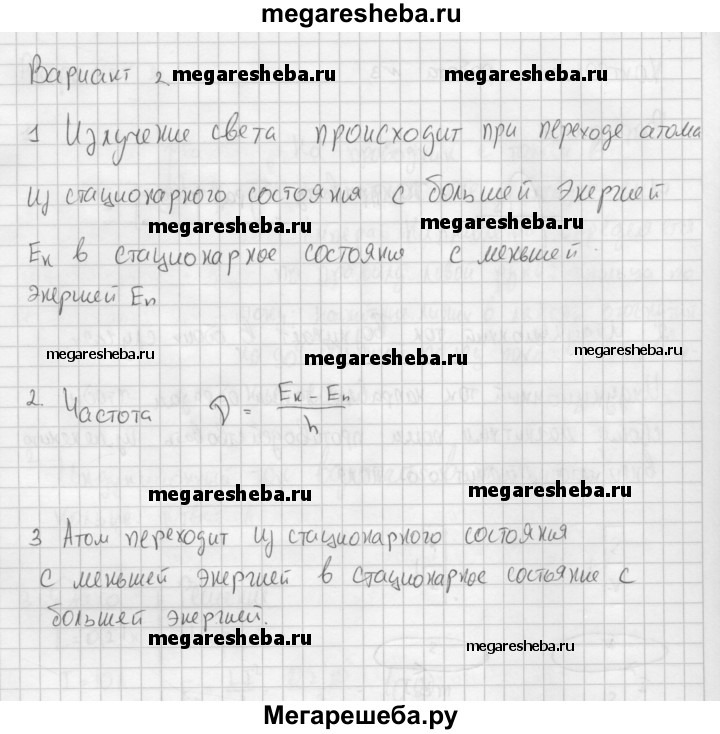 megaresheba.ru
Вариант 2 megaresheba.ru megaresheba.ru
1 Излучение света происходит при переходе атома
из стационарного состояния с большей энергией
megaresheba.ru megaresheba.ru
Eк в стационарное состояния с меньшей
энергией En
megaresheba.ru megaresheba.ru megaresheba.ru
2. Частота ν = (Eк - En)/h
megaresheba.ru megaresheba.ru
3 Атом переходит из стационарного состояния
с меньшей энергией в стационарное состояние с
большей энергией.
megaresheba.ru megaresheba.ru
Мегарешеба.ру